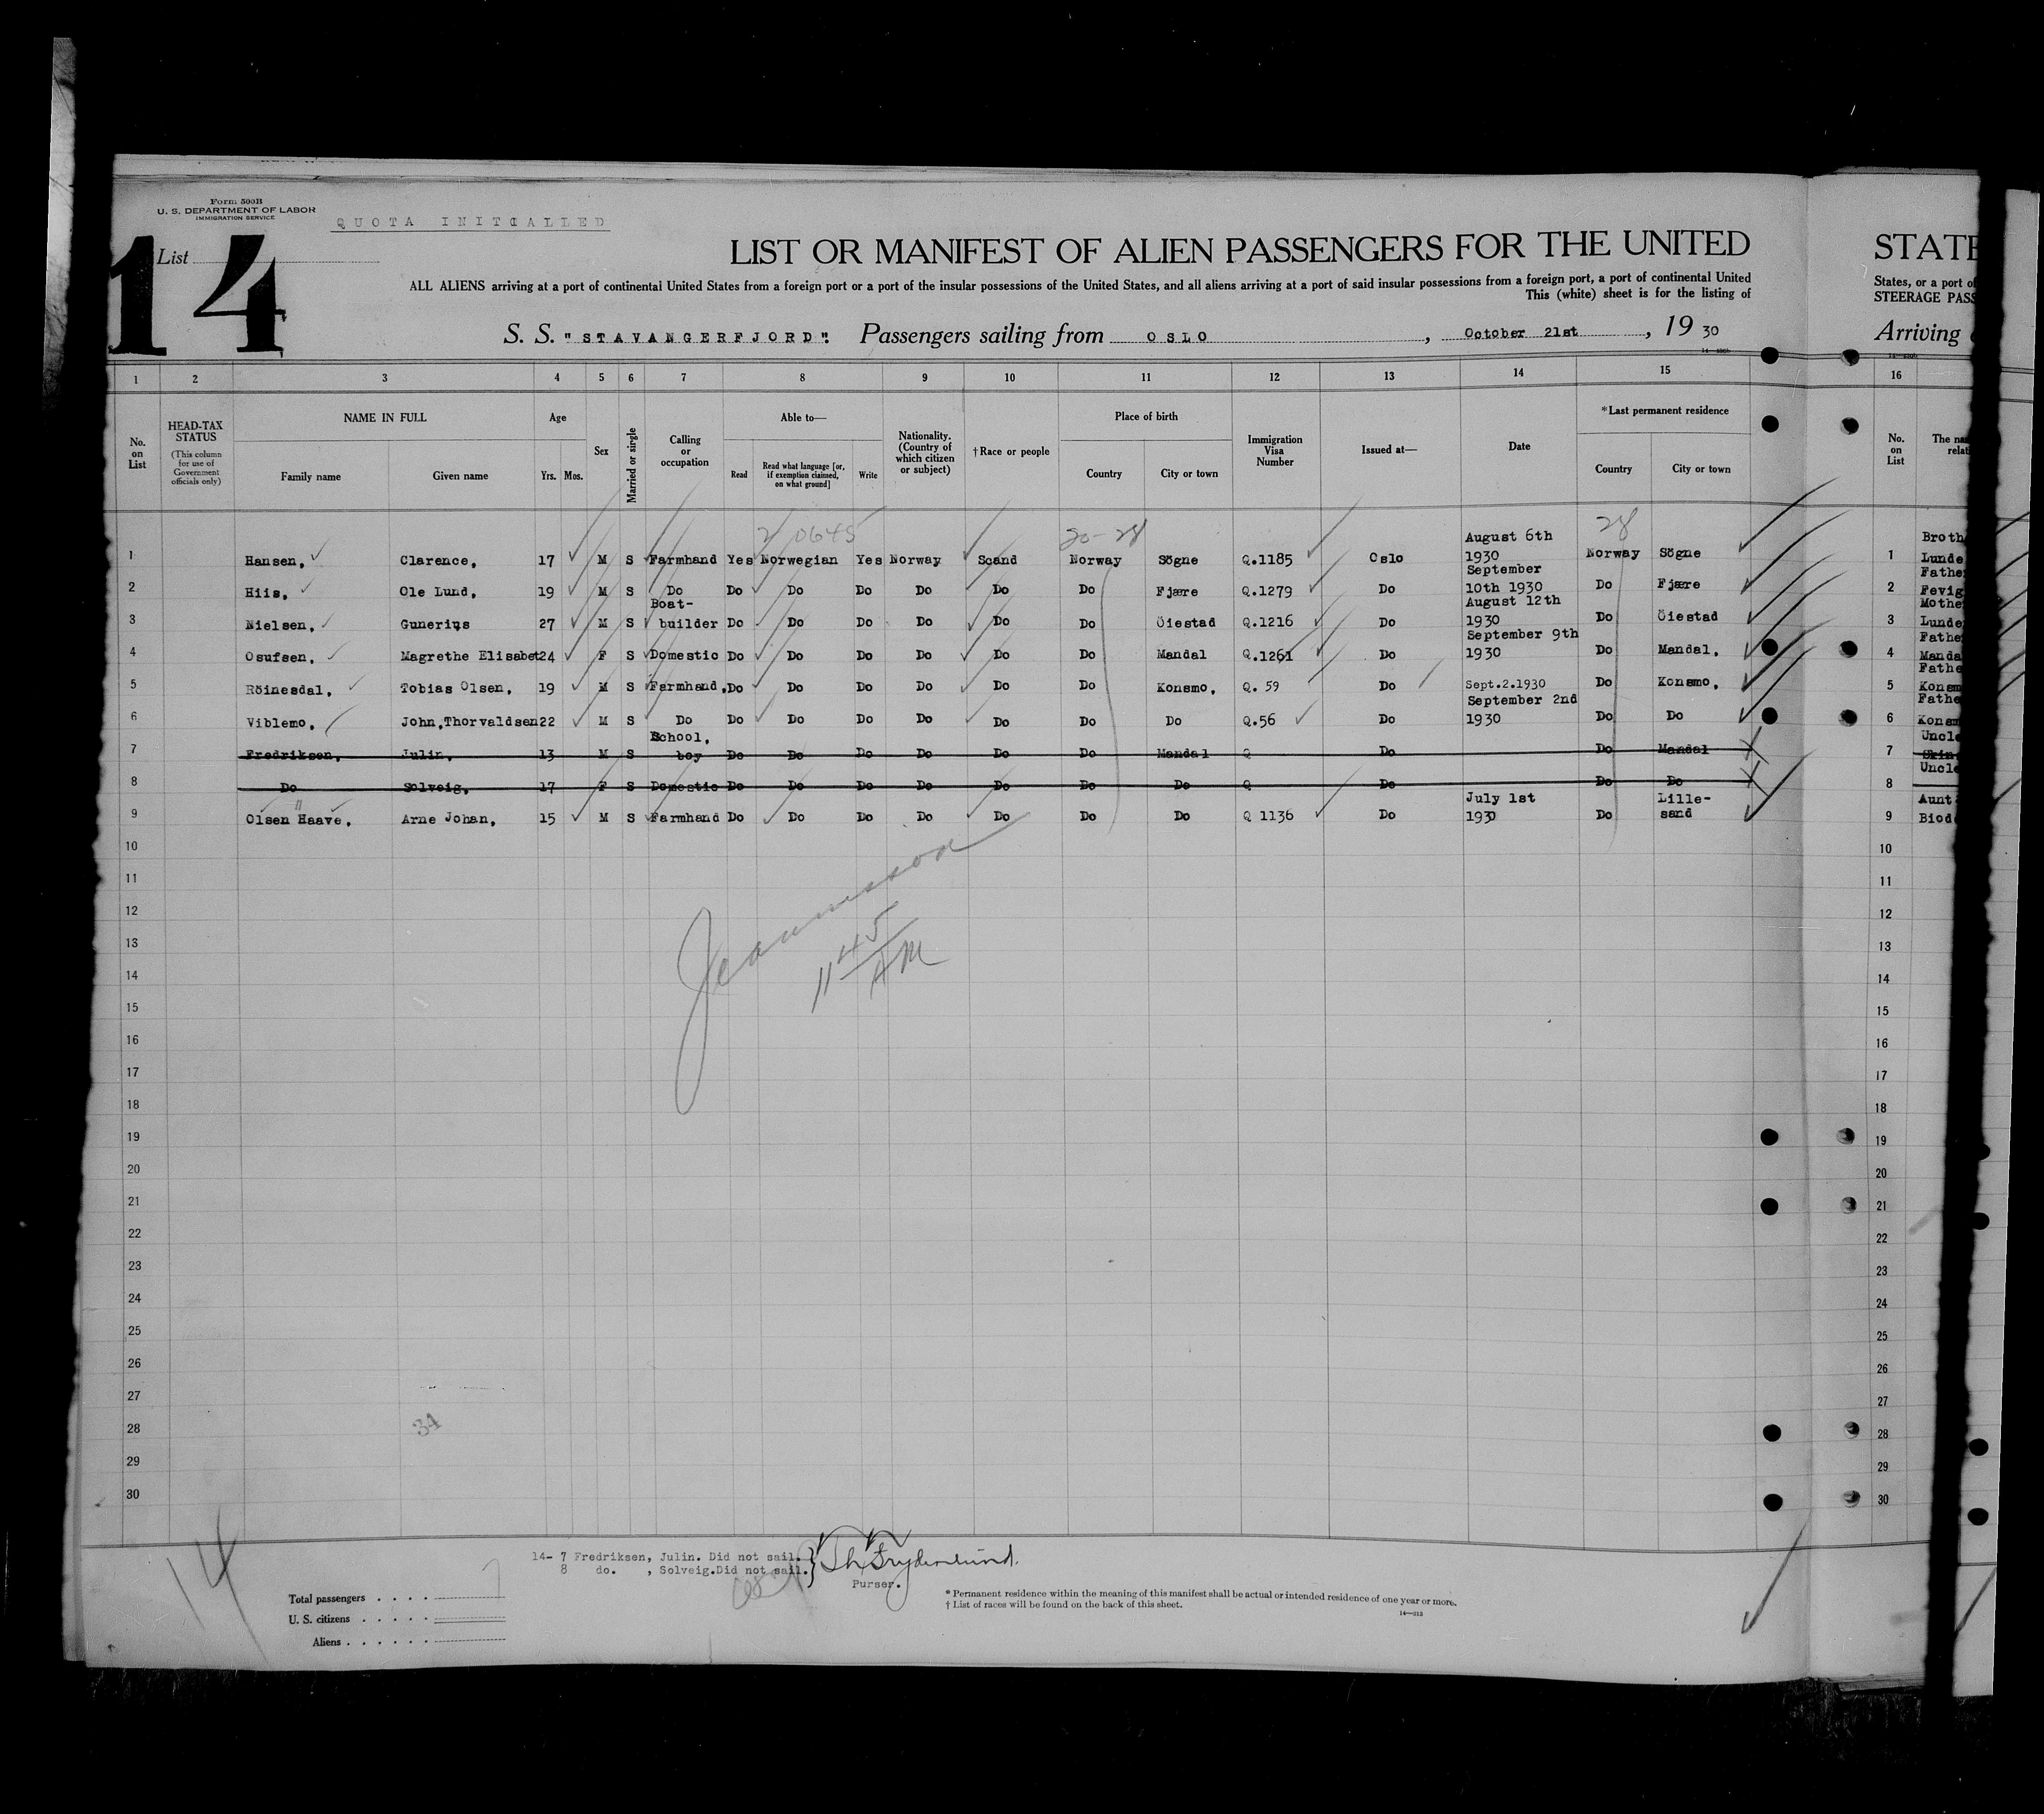 Form 500B
U. S. DEPARTMENT OF LABOR
IMMIGRATION SERVICE
QUOTA INITCALLED
List
14
LIST OR MANIFEST OF ALIEN PASSENGERS FOR THE UNITED STATE
ALL ALIENS arriving at a port of continental United States from a foreign port or a port of the insular possessions of the United States, and all aliens arriving at a port of said insular possessions from a foreign port, a port of continental United States, or a port of
This (white) sheet is for the listing of STEERAGE PASS
S. S. "STAVANGERFJORD". Passengers sailing from OSLO, October 21st, 1930 Arriving
1 2 3 4 5 6 7 8 9 10 11 12 13 14 15 16
No. on List HEAD-TAX STATUS (This column for use of Government officials only) NAME IN FULL Family name Given name Age Yrs. Mos. Sex Married or single Calling or occupation Able to— Read Read what language [or, if exemption claimed, on what ground] Write Nationality. (Country of which citizen or subject) †Race or people Place of birth Country City or town Immigration Visa Number Issued at— Date *Last permanent residence Country City or town No. on List
20-28 28
1 Hansen, Clarence, 17 M S Farmhand Yes Norwegian Yes Norway Scand Norway Sögne Q.1185 Oslo August 6th 1930 Norway Sögne 1 Broth Lunde
2 Hiis, Ole Lund, 19 M S Do Do Do Do Do Do Do Fjære Q.1279 Do September 10th 1930 Do Fjære 2 Fathe Fevig
3 Nielsen, Gunerius 27 M S Boat-builder Do Do Do Do Do Do Öiestad Q.1216 Do August 12th 1930 Do Öiestad 3 Mothe Lunde
4 Osufsen, Magrethe Elisabet 24 F S Domestic Do Do Do Do Do Do Mandal Q.1261 Do September 9th 1930 Do Mandal, 4 Fathe Manda
5 Röinesdal, Tobias Olsen, 19 M S Farmhand, Do Do Do Do Do Do Konsmo, Q. 59 Do Sept.2.1930 Do Konsmo, 5 Fathe Konsm
6 Viblemo, John,Thorvaldsen 22 M S Do Do Do Do Do Do Do Do Q.56 Do September 2nd 1930 Do Do 6 Fathe Konsm
7 Fredriksen, Julin, 13 M S School, boy Do Do Do Do Do Do Mandal Q Do Do Mandal 7 Uncle Skin
8 Do Solveig, 17 F S Domestic Do Do Do Do Do Do Do Q Do Do Do 8 Uncle
9 Olsen Haave, Arne Johan, 15 M S Farmhand Do Do Do Do Do Do Do Q 1136 Do July 1st 1930 Do Lille-sand 9 Aunt Biod
10 10
11 11
12 12
13 13
14 14
15 15
16 16
17 17
18 18
19 19
20 20
21 21
22 22
23 23
24 24
25 25
26 26
27 27
28 28
29 29
30 30
11 45 AM
34
14
14- 7 Fredriksen, Julin. Did not sail.
8 do. , Solveig.Did not sail.
Purser.
Total passengers
7
U. S. citizens
Aliens
* Permanent residence within the meaning of this manifest shall be actual or intended residence of one year or more.
† List of races will be found on the back of this sheet.
14—213